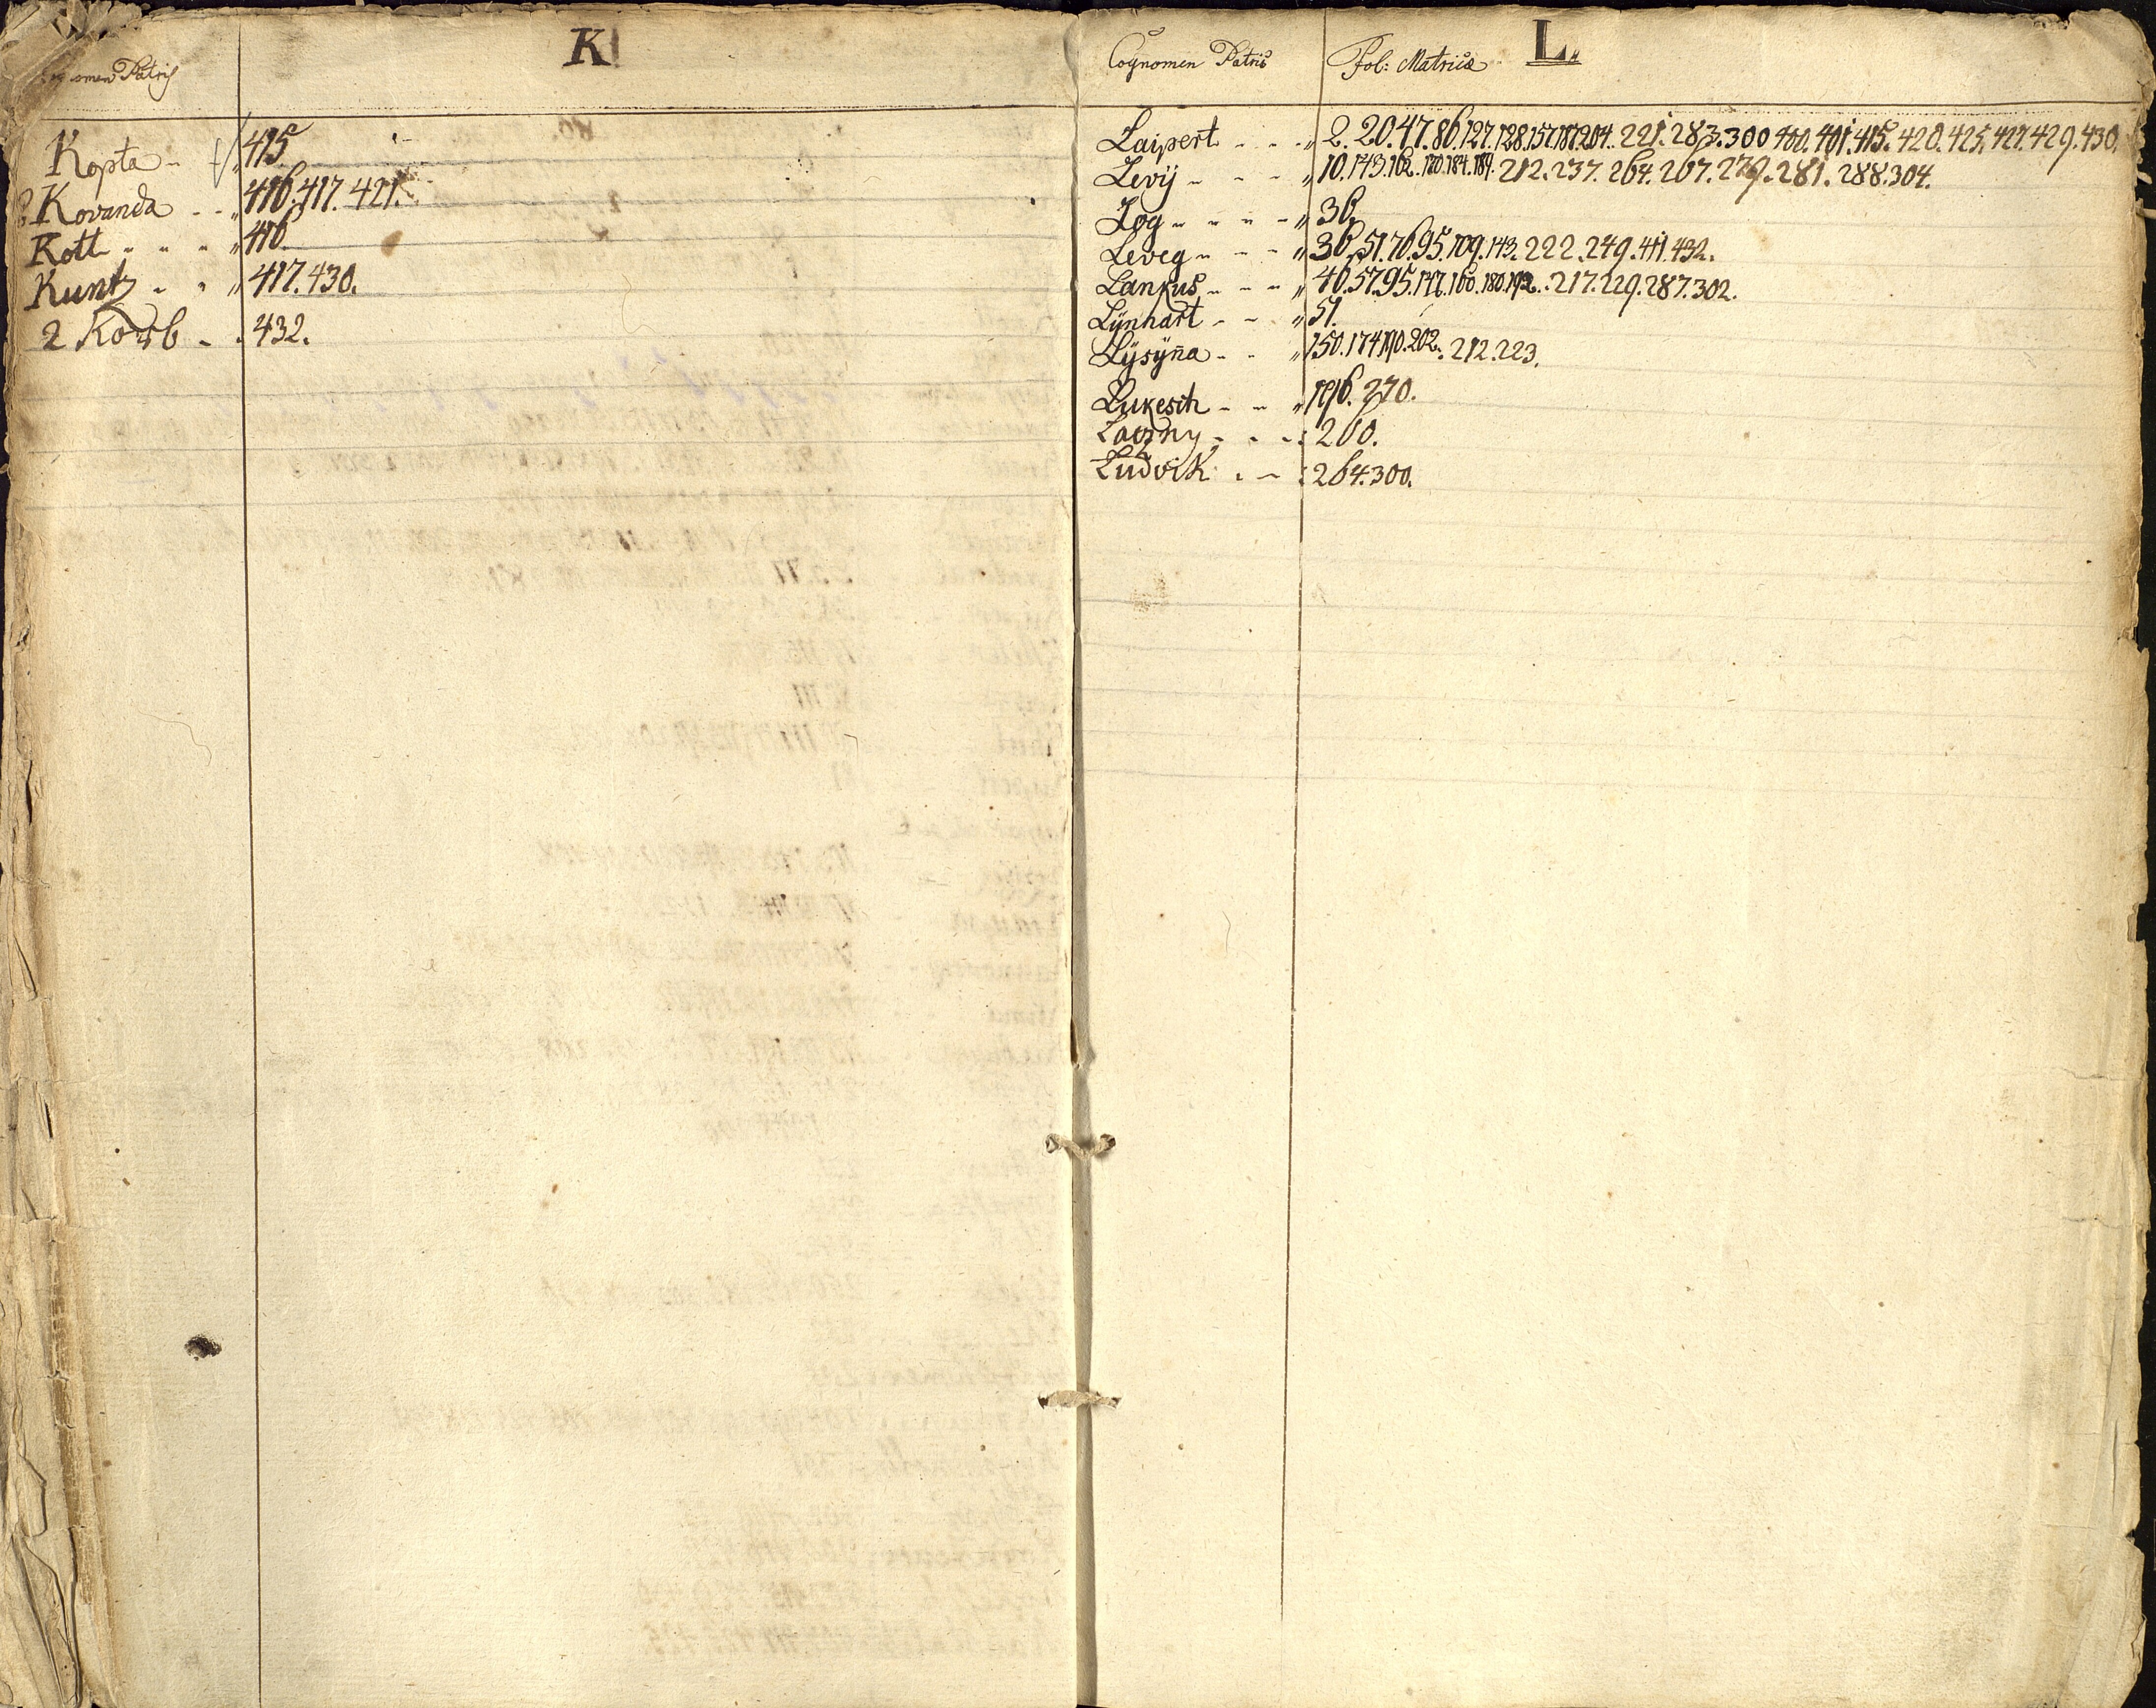 omen Patris
K
Kopta 415
Kovanda 416. 417. 421.
Kott 416.
Kuntz 417. 430.
2 Korb 432.
Cognomen Patris Fol: Matricæ L.
Laipert 2. 20. 47. 86. 127. 128. 157. 187. 204. 221. 283. 300 400. 401. 415. 420. 425. 427. 429. 430.
Levij 10. 143. 162. 180. 184. 189. 212. 237. 264. 267. 279. 281. 288. 304.
Log 36.
Leveg 36. 51. 76. 95. 109. 143. 222. 249. 411. 432.
Lankus 40. 57. 95. 160. 180. 192. 217. 229. 287. 302.
Lÿnhart 51.
Lÿsÿna 150. 174. 190. 202. 212. 223.
Lukesch 196. 270.
260.
Ludvik 264. 300.